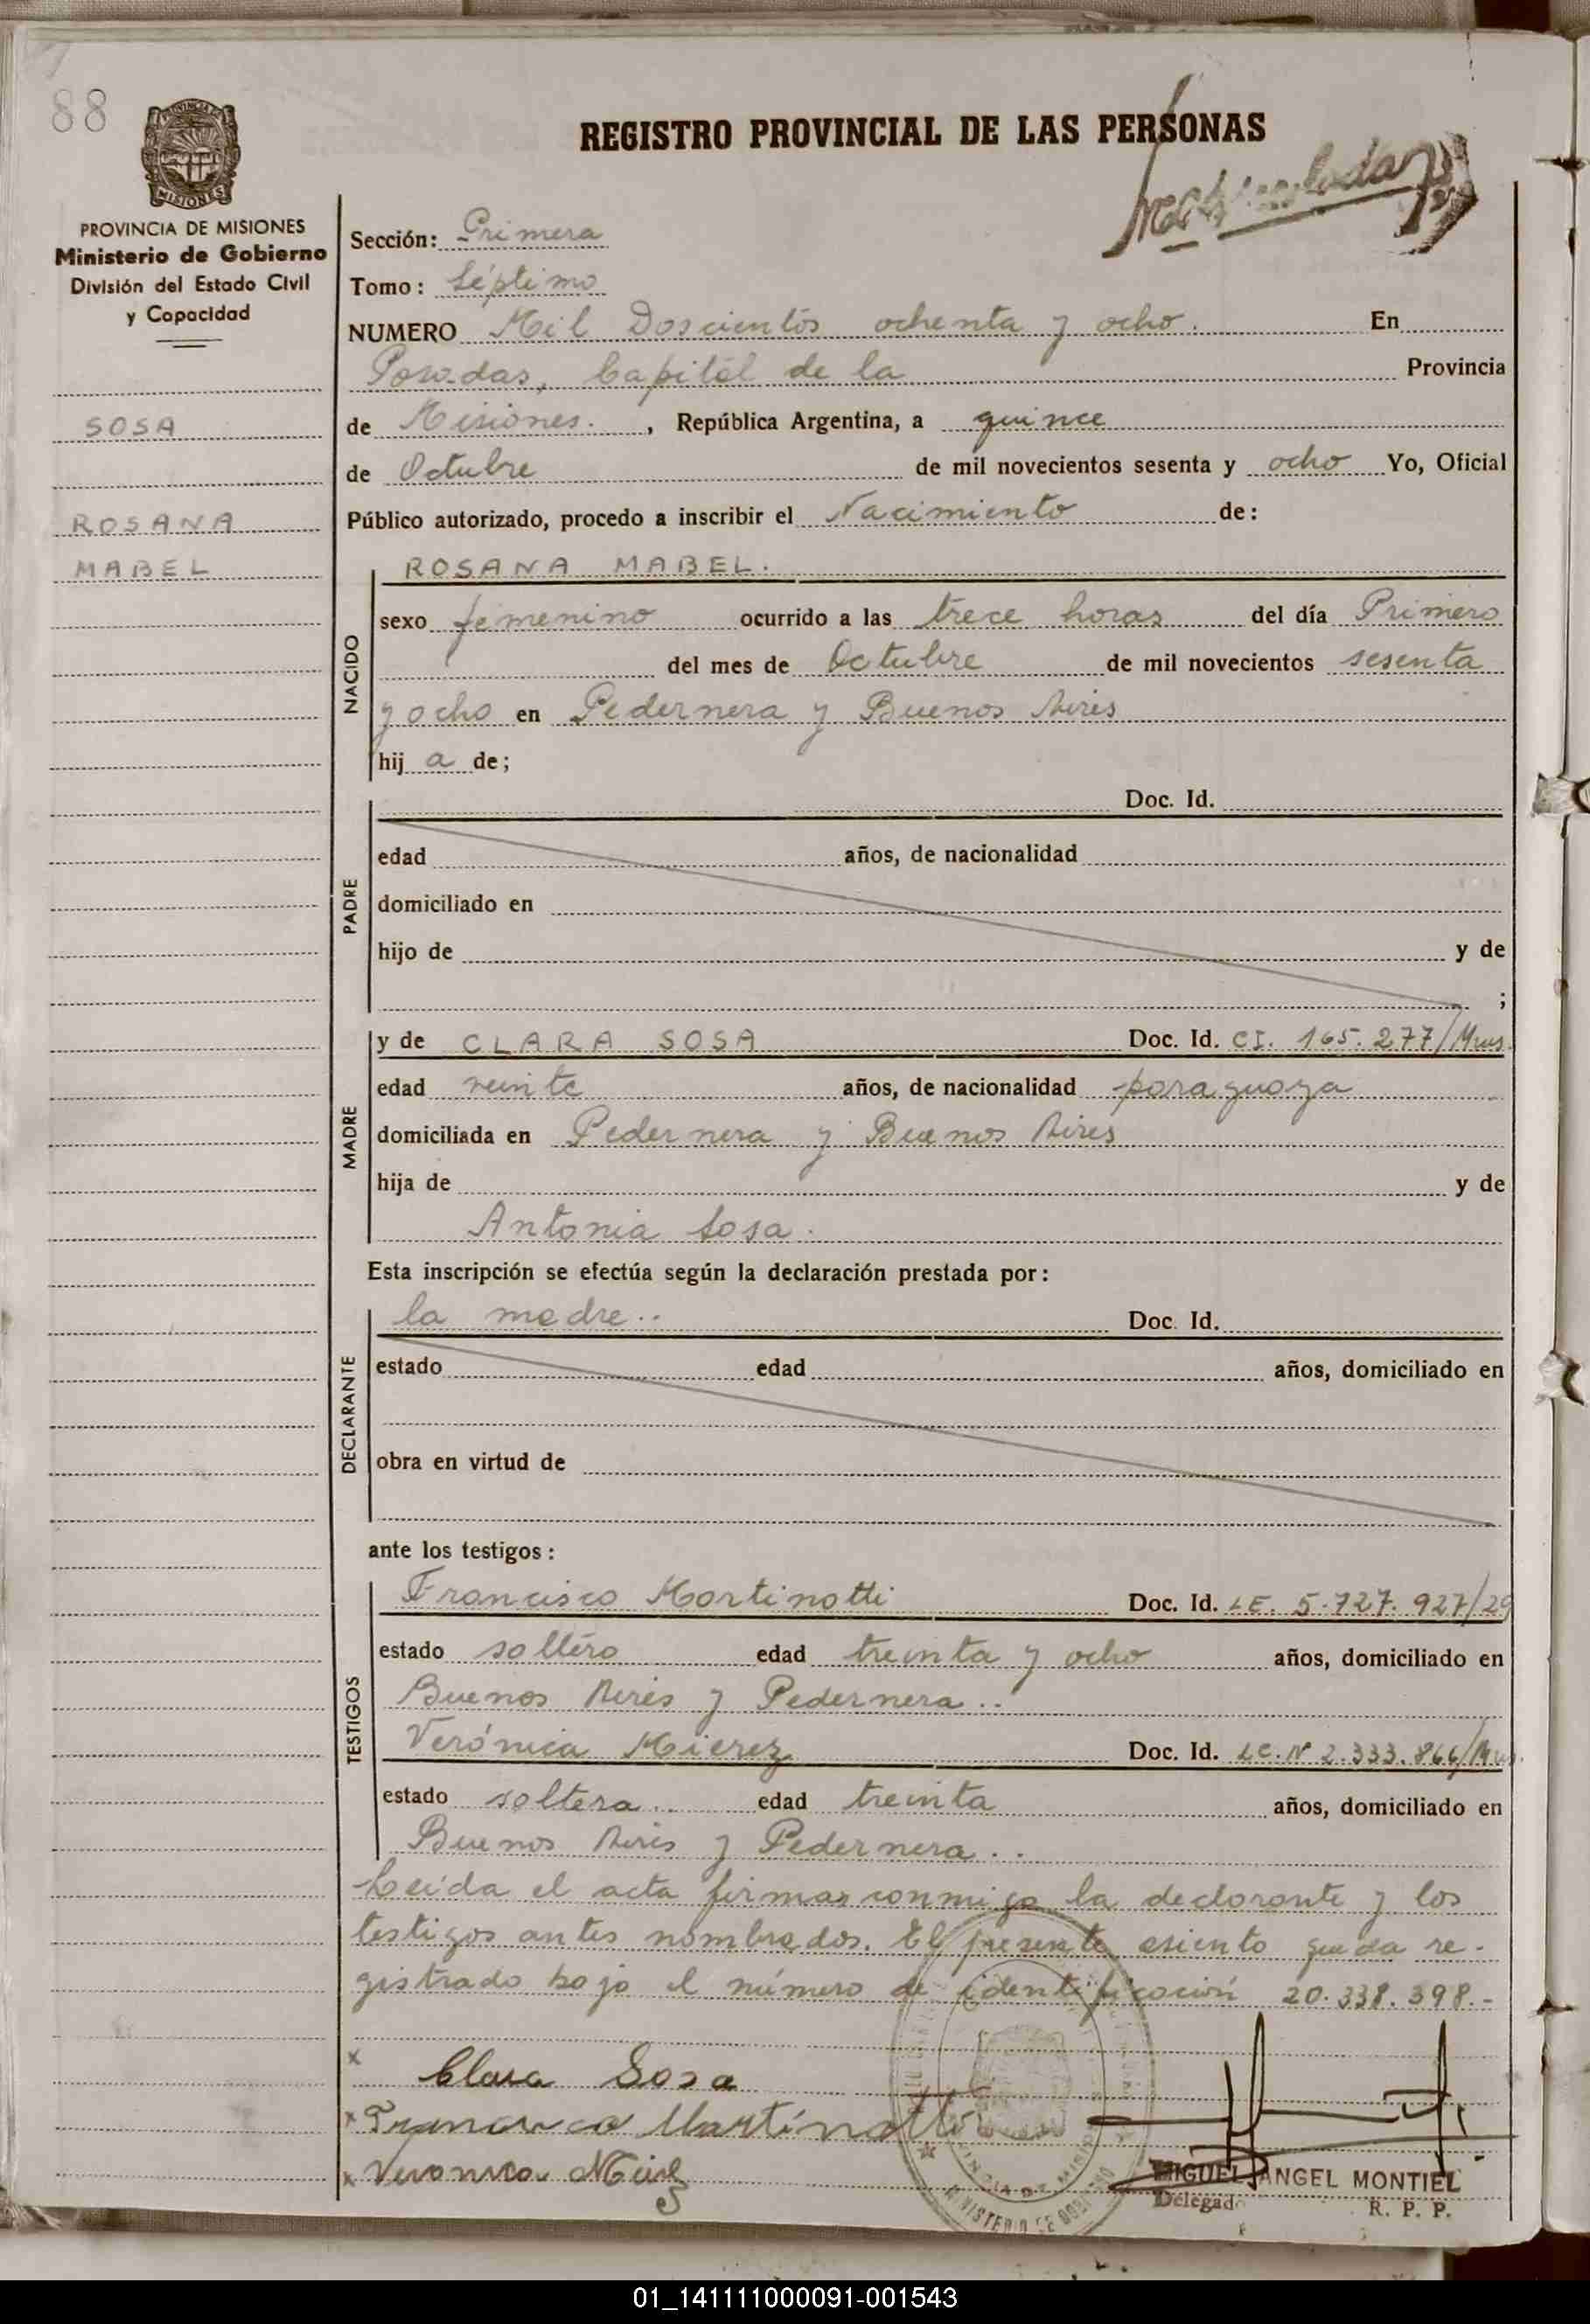 88
REGISTRO PROVINCIAL DE LAS PERSONAS
PROVINCIA DE MISIONES
Ministerio de Gobierno
División del Estado Civil
y Capacidad
SOSA
ROSANA
MABEL
Sección: Primera
Tomo: Séptimo
NUMERO Mil Doscientos ochenta y ocho. En
Posadas, Capital de la Provincia
de Misiones. , República Argentina, a quince
de Octubre de mil novecientos sesenta y ocho Yo, Oficial
Público autorizado, procedo a inscribir el Nacimiento de:
NACIDO
ROSANA MABEL.
sexo femenino ocurrido a las trece horas del día Primero
del mes de Octubre de mil novecientos sesenta
y ocho en Pedernera y Buenos Aires
hij a de;
PADRE
Doc. Id.
edad años, de nacionalidad
domiciliado en
hijo de y de
;
MADRE
y de CLARA SOSA Doc. Id. CI. 165.277/Mnes.
edad veinte años, de nacionalidad paraguaya
domiciliada en Pedernera y Buenos Aires
hija de y de
Antonia Sosa.
Esta inscripción se efectúa según la declaración prestada por:
DECLARANTE
la madre.. Doc. Id.
estado edad años, domiciliado en
obra en virtud de
ante los testigos:
TESTIGOS
Francisco Martinotti Doc. Id. LE. 5.727.927/29
estado soltero edad treinta y ocho años, domiciliado en
Buenos Aires y Pedernera..
Verónica Mierez Doc. Id. LC. Nº 2.333.866/
estado soltera.. edad treinta años, domiciliado en
Buenos Aires y Pedernera..
Leida el acta firman conmigo la declarante y los
testigos antes nombrados. El presente asiento queda re-
gistrado bajo el número de identificación 20.338.398.-
x Clara Sosa
x Francisco Martinotti
x Veronica
MIGUEL ANGEL MONTIEL
Delegado R. P. P.
01_141111000091-001543